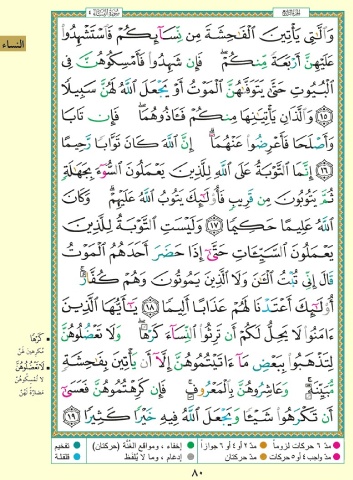 سُورَةُ النِّسَاء ٤
الجزء الرابع
النساء
وَالَّٰتِى يَأْتِينَ الْفَٰحِشَةَ مِن نِّسَآئِكُمْ فَاسْتَشْهِدُوا۟
عَلَيْهِنَّ أَرْبَعَةً مِّنكُمْ ۖ فَإِن شَهِدُوا۟ فَأَمْسِكُوهُنَّ فِى
الْبُيُوتِ حَتَّىٰ يَتَوَفَّىٰهُنَّ الْمَوْتُ أَوْ يَجْعَلَ اللَّهُ لَهُنَّ سَبِيلًا
﴿١٥﴾ وَالَّذَانِ يَأْتِيَٰنِهَا مِنكُمْ فَـَٔاذُوهُمَا ۖ فَإِن تَابَا
وَأَصْلَحَا فَأَعْرِضُوا۟ عَنْهُمَآ ۗ إِنَّ اللَّهَ كَانَ تَوَّابًا رَّحِيمًا
﴿١٦﴾ إِنَّمَا التَّوْبَةُ عَلَى اللَّهِ لِلَّذِينَ يَعْمَلُونَ السُّوٓءَ بِجَهَٰلَةٍ
ثُمَّ يَتُوبُونَ مِن قَرِيبٍ فَأُو۟لَٰٓئِكَ يَتُوبُ اللَّهُ عَلَيْهِمْ ۗ وَكَانَ
اللَّهُ عَلِيمًا حَكِيمًا ﴿١٧﴾ وَلَيْسَتِ التَّوْبَةُ لِلَّذِينَ
يَعْمَلُونَ السَّيِّـَٔاتِ حَتَّىٰٓ إِذَا حَضَرَ أَحَدَهُمُ الْمَوْتُ
قَالَ إِنِّى تُبْتُ الْـَٰٔنَ وَلَا الَّذِينَ يَمُوتُونَ وَهُمْ كُفَّارٌ ۚ
أُو۟لَٰٓئِكَ أَعْتَدْنَا لَهُمْ عَذَابًا أَلِيمًا ﴿١٨﴾ يَٰٓأَيُّهَا الَّذِينَ
ءَامَنُوا۟ لَا يَحِلُّ لَكُمْ أَن تَرِثُوا۟ النِّسَآءَ كَرْهًا ۖ وَلَا تَعْضُلُوهُنَّ
لِتَذْهَبُوا۟ بِبَعْضِ مَآ ءَاتَيْتُمُوهُنَّ إِلَّآ أَن يَأْتِينَ بِفَٰحِشَةٍ
مُّبَيِّنَةٍ ۚ وَعَاشِرُوهُنَّ بِالْمَعْرُوفِ ۚ فَإِن كَرِهْتُمُوهُنَّ فَعَسَىٰٓ
أَن تَكْرَهُوا۟ شَيْـًٔا وَيَجْعَلَ اللَّهُ فِيهِ خَيْرًا كَثِيرًا ﴿١٩﴾
كَرْهًا
مُكْرِهِينَ لَهُنَّ
لَا تَعْضُلُوهُنَّ
لَا تُمْسِكُوهُنَّ
مُضَارَّةً لَهُنَّ
مدّ ٦ حركات لزوماً
مدّ ٢ أو ٤ أو ٦ جوازاً
إخفاء، ومواقع الغُنَّة (حركتان)
تفخيم
مدّ واجب ٤ أو ٥ حركات
مدّ حركتان
إدغام، وما لا يُلفَظ
قلقلة
٨٠